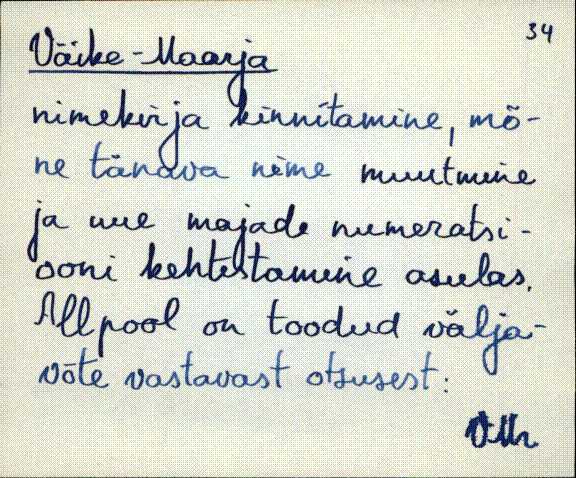 34
Väike-Maarja
nimekirja kinnitamine, mõ-
ne tänava nime muutmine
ja uue majade numeratsi-
ooni kehtestamine asulas.
Allpool on toodud välja-
võte vastavast otsusest: